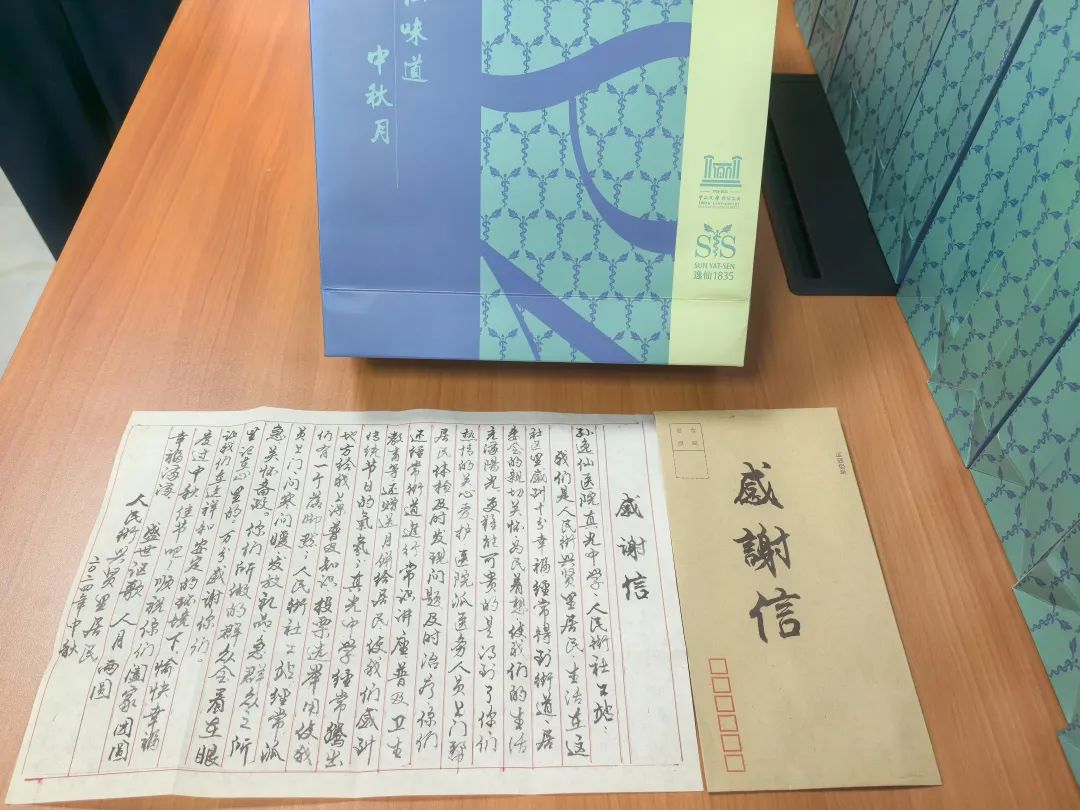 味道
中秋月
SUN YAT-SEN
逸仙1835
感谢信
孙逸仙医院真光中学、人民街社工站:
我们是人民街兴贤里居民生活在这
社区里感到十分幸福经常得到街道居
委会的亲切关怀为民着想使我们的生活
充满阳光更难能可贵的是得到了你们
热情的关心爱护医院派医务人员上门帮
居民体检及时发现问题及时治疗你们
还经常街道进行常识讲座普及卫生
教育等还赠送月饼给居民使我们感到
传统节日的氛氛:真光中学经常腾出
地方给我上课普及知识投票选举用使我
们有一个落脚点:人民街社工站经常派
员上门问寒问暖发放礼品急群众之所
急关怀备致。你们所做的群众会看在眼
里记在心里的,万分感谢你们。
让我们在这祥和安定的环境下愉快幸福
度过中秋佳节吧!顺祝你们阖家团圆
幸福满满
盛世讴歌人月两圆
人民街兴贤里居民
二〇二四年中秋
感謝信